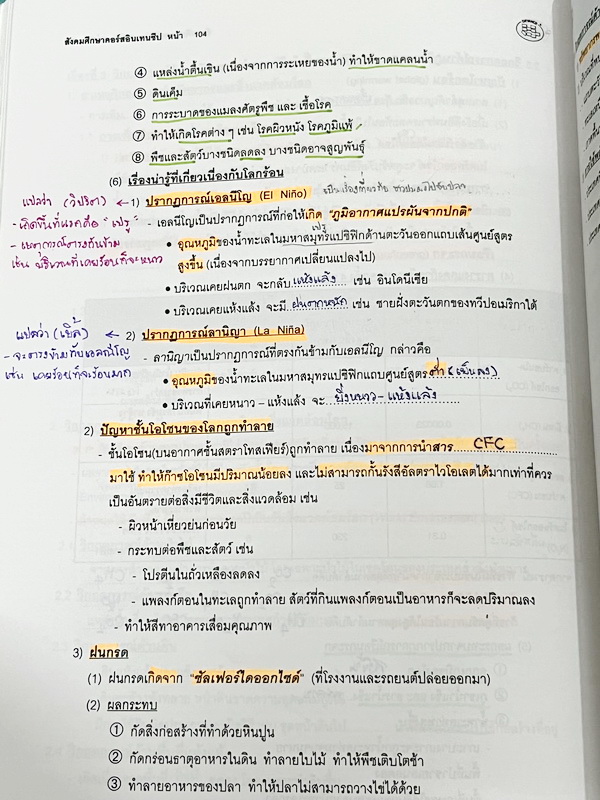 สังคมศึกษาคอร์สอินเทนซีป หน้า 104
④ แหล่งน้ำตื้นเขิน (เนื่องจากการระเหยของน้ำ) ทำให้ขาดแคลนน้ำ
⑤ ดินเค็ม
⑥ การระบาดของแมลงศัตรูพืช และ เชื้อโรค
⑦ ทำให้เกิดโรคต่าง ๆ เช่น โรคผิวหนัง โรคภูมิแพ้
⑧ พืชและสัตว์บางชนิดลดลง บางชนิดอาจสูญพันธุ์
(6) เรื่องน่ารู้ที่เกี่ยวเนื่องกับโลกร้อน
แปลว่า (วิปริต) ← 1) ปรากฏการณ์เอลนีโญ (El Niño)
- เกิดขึ้นที่แรกคือ "เปรู" - เอลนีโญเป็นปรากฏการณ์ที่ก่อให้เกิด "ภูมิอากาศแปรผันจากปกติ"
- เหตุการณ์ตรงกันข้าม
เปรู
• อุณหภูมิของน้ำทะเลในมหาสมุทรแปซิฟิกด้านตะวันออกแถบเส้นศูนย์สูตร
สูงขึ้น (เนื่องจากบรรยากาศเปลี่ยนแปลงไป)
• บริเวณเคยฝนตก จะกลับ แห้งแล้ง เช่น อินโดนีเซีย
• บริเวณเคยแห้งแล้ง จะมี ฝนตกหนัก เช่น ชายฝั่งตะวันตกของทวีปอเมริกาใต้
← 2) ปรากฏการณ์ลานิญา (La Niña)
- จะตรงข้ามกับเอลนีโญ - ลานิญาเป็นปรากฏการณ์ที่ตรงกันข้ามกับเอลนีโญ กล่าวคือ
• อุณหภูมิของน้ำทะเลในมหาสมุทรแปซิฟิกแถบศูนย์สูตร ต่ำ (เย็นลง)
• บริเวณที่เคยหนาว – แห้งแล้ง จะ ยิ่งหนาว - แห้งแล้ง
2) ปัญหาชั้นโอโซนของโลกถูกทำลาย
- ชั้นโอโซน(บนอากาศชั้นสตราโทสเฟียร์)ถูกทำลาย เนื่องมาจากการนำสาร CFC
มาใช้ ทำให้ก๊าซโอโซนมีปริมาณน้อยลง และไม่สามารถกั้นรังสีอัลตราไวโอเลตได้มากเท่าที่ควร
เป็นอันตรายต่อสิ่งมีชีวิตและสิ่งแวดล้อม เช่น
- ผิวหน้าเหี่ยวย่นก่อนวัย
- กระทบต่อพืชและสัตว์ เช่น
- โปรตีนในถั่วเหลืองลดลง
- แพลงก์ตอนในทะเลถูกทำลาย สัตว์ที่กินแพลงก์ตอนเป็นอาหารก็จะลดปริมาณลง
- ทำให้สีทาอาคารเสื่อมคุณภาพ
3) ฝนกรด
(1) ฝนกรดเกิดจาก "ซัลเฟอร์ไดออกไซด์" (ที่โรงงานและรถยนต์ปล่อยออกมา)
(2) ผลกระทบ
① กัดสิ่งก่อสร้างที่ทำด้วยหินปูน
② กัดกร่อนธาตุอาหารในดิน ทำลายใบไม้ ทำให้พืชเติบโตช้า
③ ทำลายอาหารของปลา ทำให้ปลาไม่สามารถวางไข่ได้ด้วย